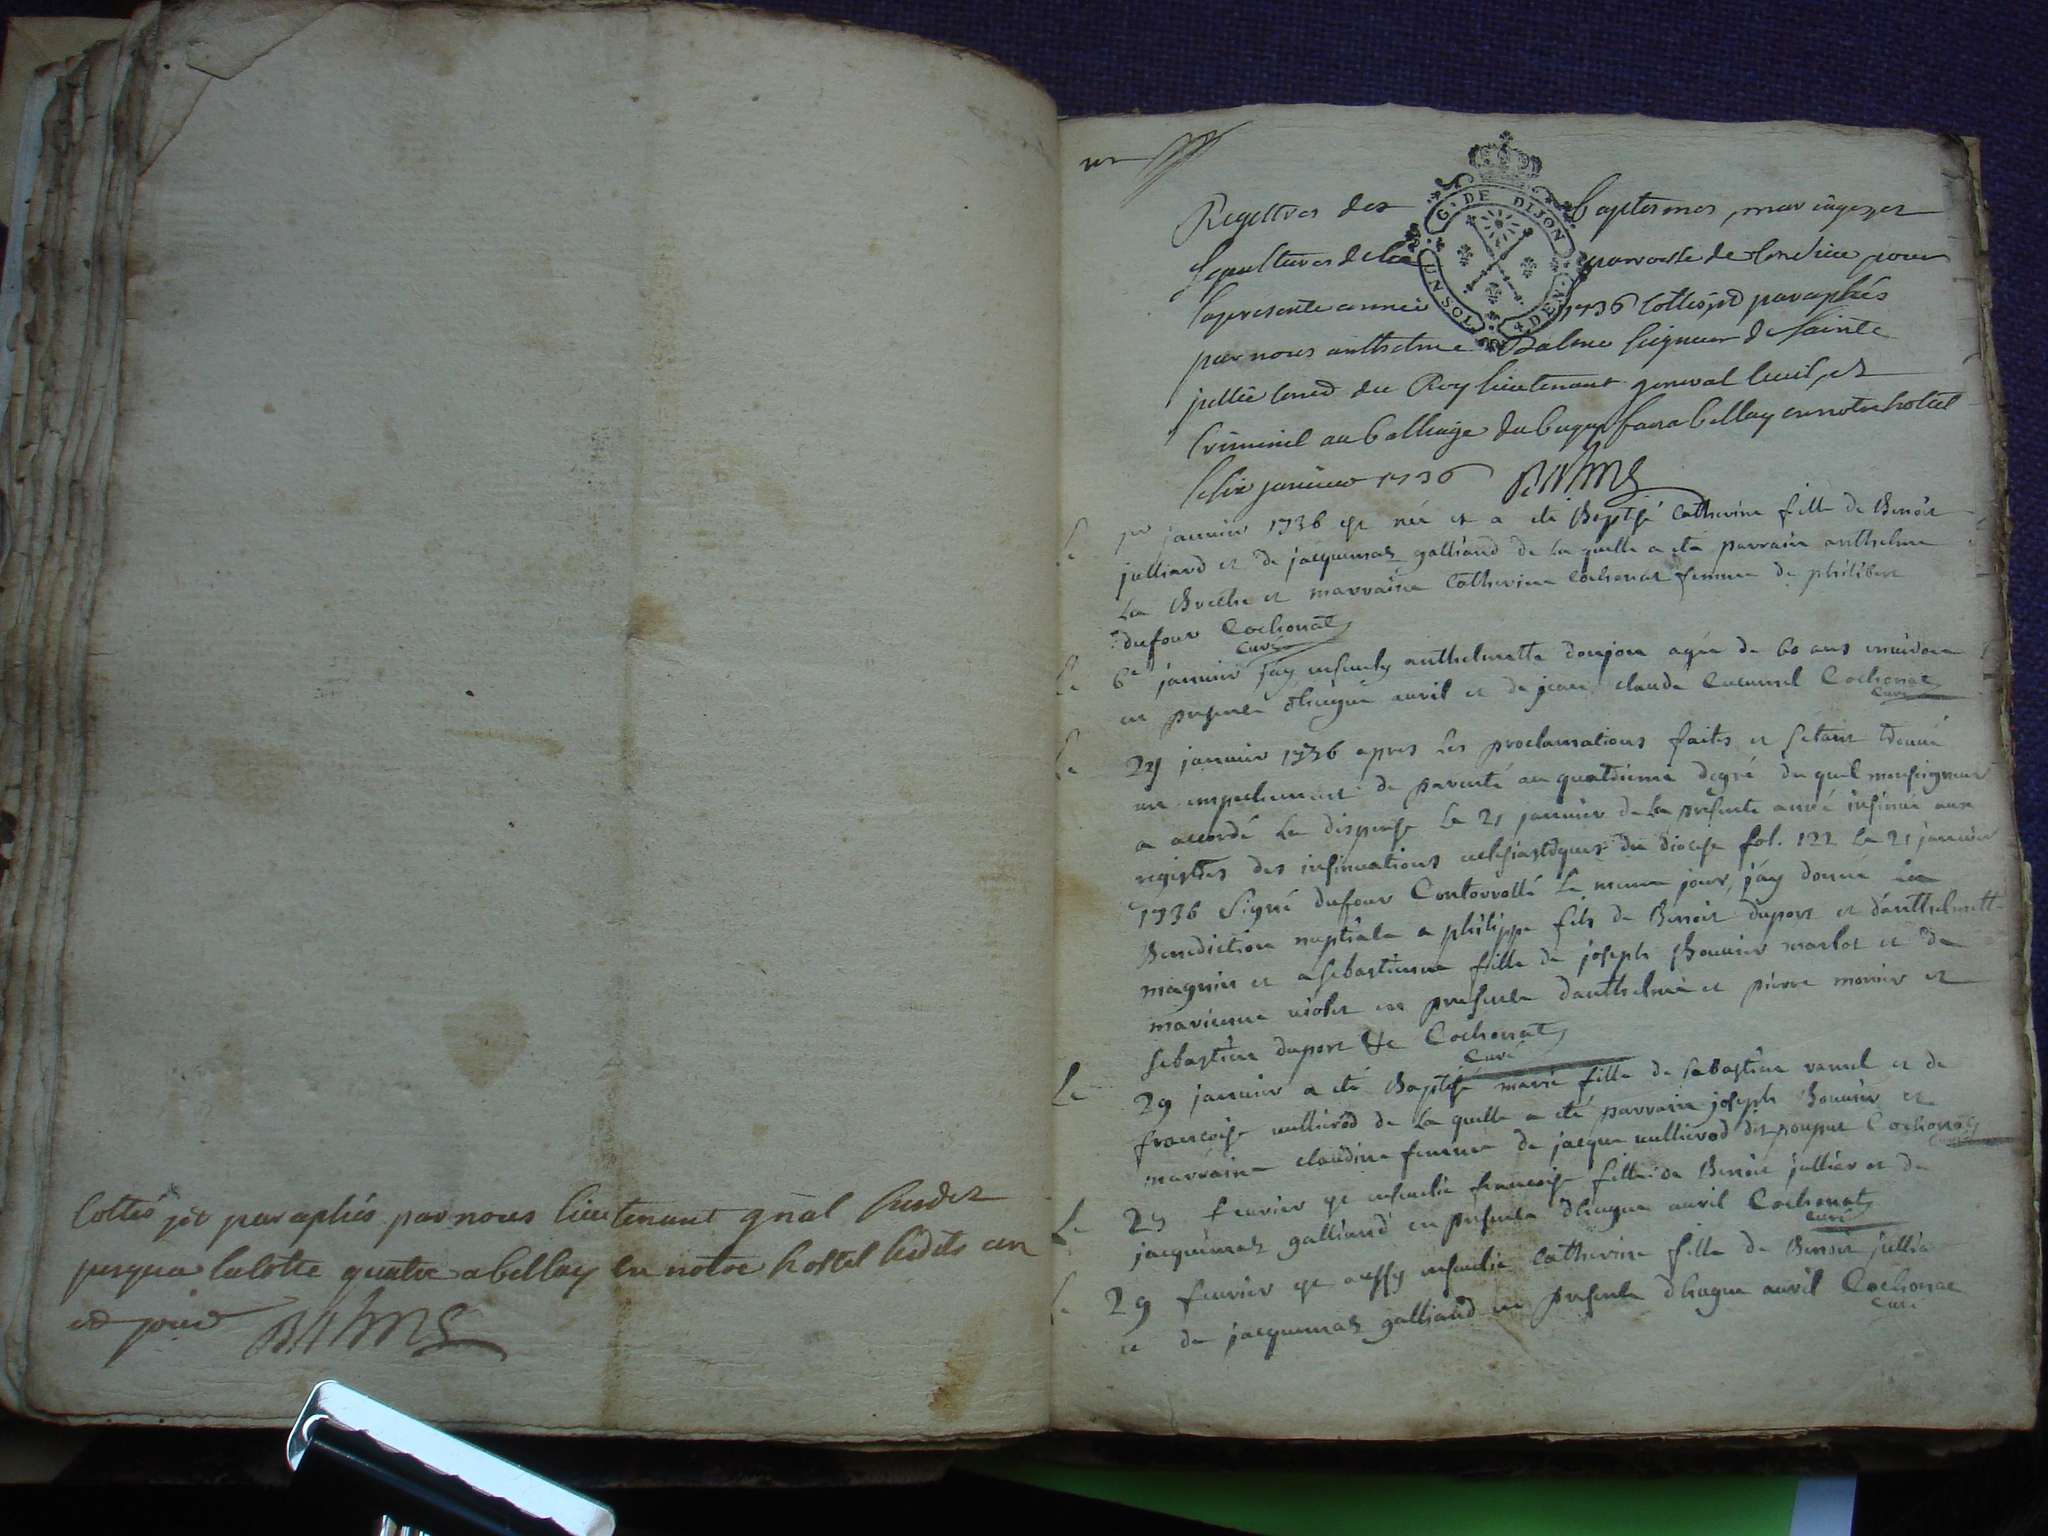 Cottés et paraphés par nous lieutenant gnal susdit
jusqua la cotte quatre a bellay en notre hostel lesdits an
et jour BAlme
un
G. DE DIJON
UN SOL
DEN.
Registres des baptesmes, mariages, et
sepultures de la parroisse de pour
la presente année 1736 cottés et paraphés
par nous anthelme Balme seigneur de sainte
jullie du Roy lieutenant general civil, et
criminel au balliage du bugey bellay en notre hotel
le six janvier 1736 BAlme
Le 1er janvier 1736 est née et a été Baptisé Catherine fille de Benoit
julliard et de jacquemaz galliand de la quelle a été parrain anthelme
La Breche et marraine Catherine Cochonat femme de philibert
dufour Cochonat
Curé
Le 6e janvier jay ensevely anthelmette donjon agée de 60 ans
en presence dhugue avril et de jean claude Cochonat
Curé
Le 24 janvier 1736 apres les proclamations faites et setant trouvé
un empechement de parenté au quatrieme degré du quel monseigneur
a accordé la dispense le 21 janvier de la presente année insinué aux
registres des insinuations eclesiastiques du diocese fol. 122 le 21 janvier
1736 signé dufour Controrollé le meme jour, j'ay donné la
Benediction nuptiale a philippe fils de Benoit duport et d'anthelmette
magnin et a sebastienne fille de joseph Bouvier marlot et de
marienne violet en presence danthelme et pierre monier et
sebastien duport &c Cochonat
Curé
Le 29 janvier a été Baptisé marie fille de sebastien et de
francoise vullierod de la quelle a été parrain joseph Bouvier et
marraine claudine femme de jacque vullierod dit Cochonat
Le 25 fevrier est ensevelie francoise fille de Benoit julliar et de
jacquemaz galliand en presence dhugue avril Cochonat
Curé
Le 29 fevrier est aussy ensevelie Catherine fille de Benoit jullia
et de jacquemaz galliand en presence dhugue avril Cochonat
Curé